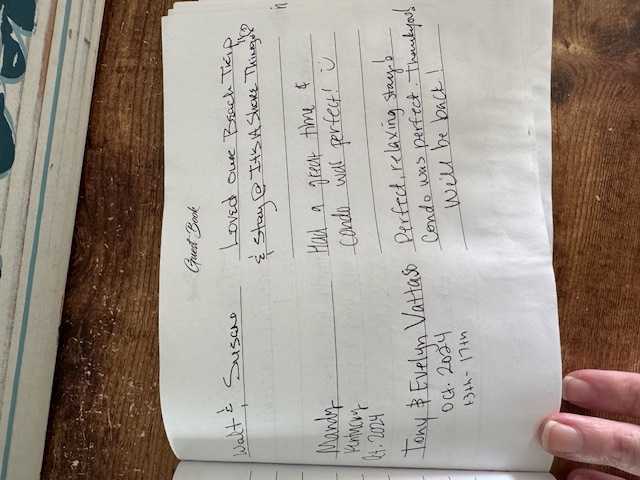 Guest Book
Walt & Susan Loved Our Beach Trip
& Stay @ Its A Shore Thing!!
Mandy Had a great time &
Condo was perfect!
Oct. 2024
Tony & Evelyn Vattaso Perfect, relaxing stay!
Oct. 2024 Condo was perfect. Thankyou!
13th - 17th We'll be back!